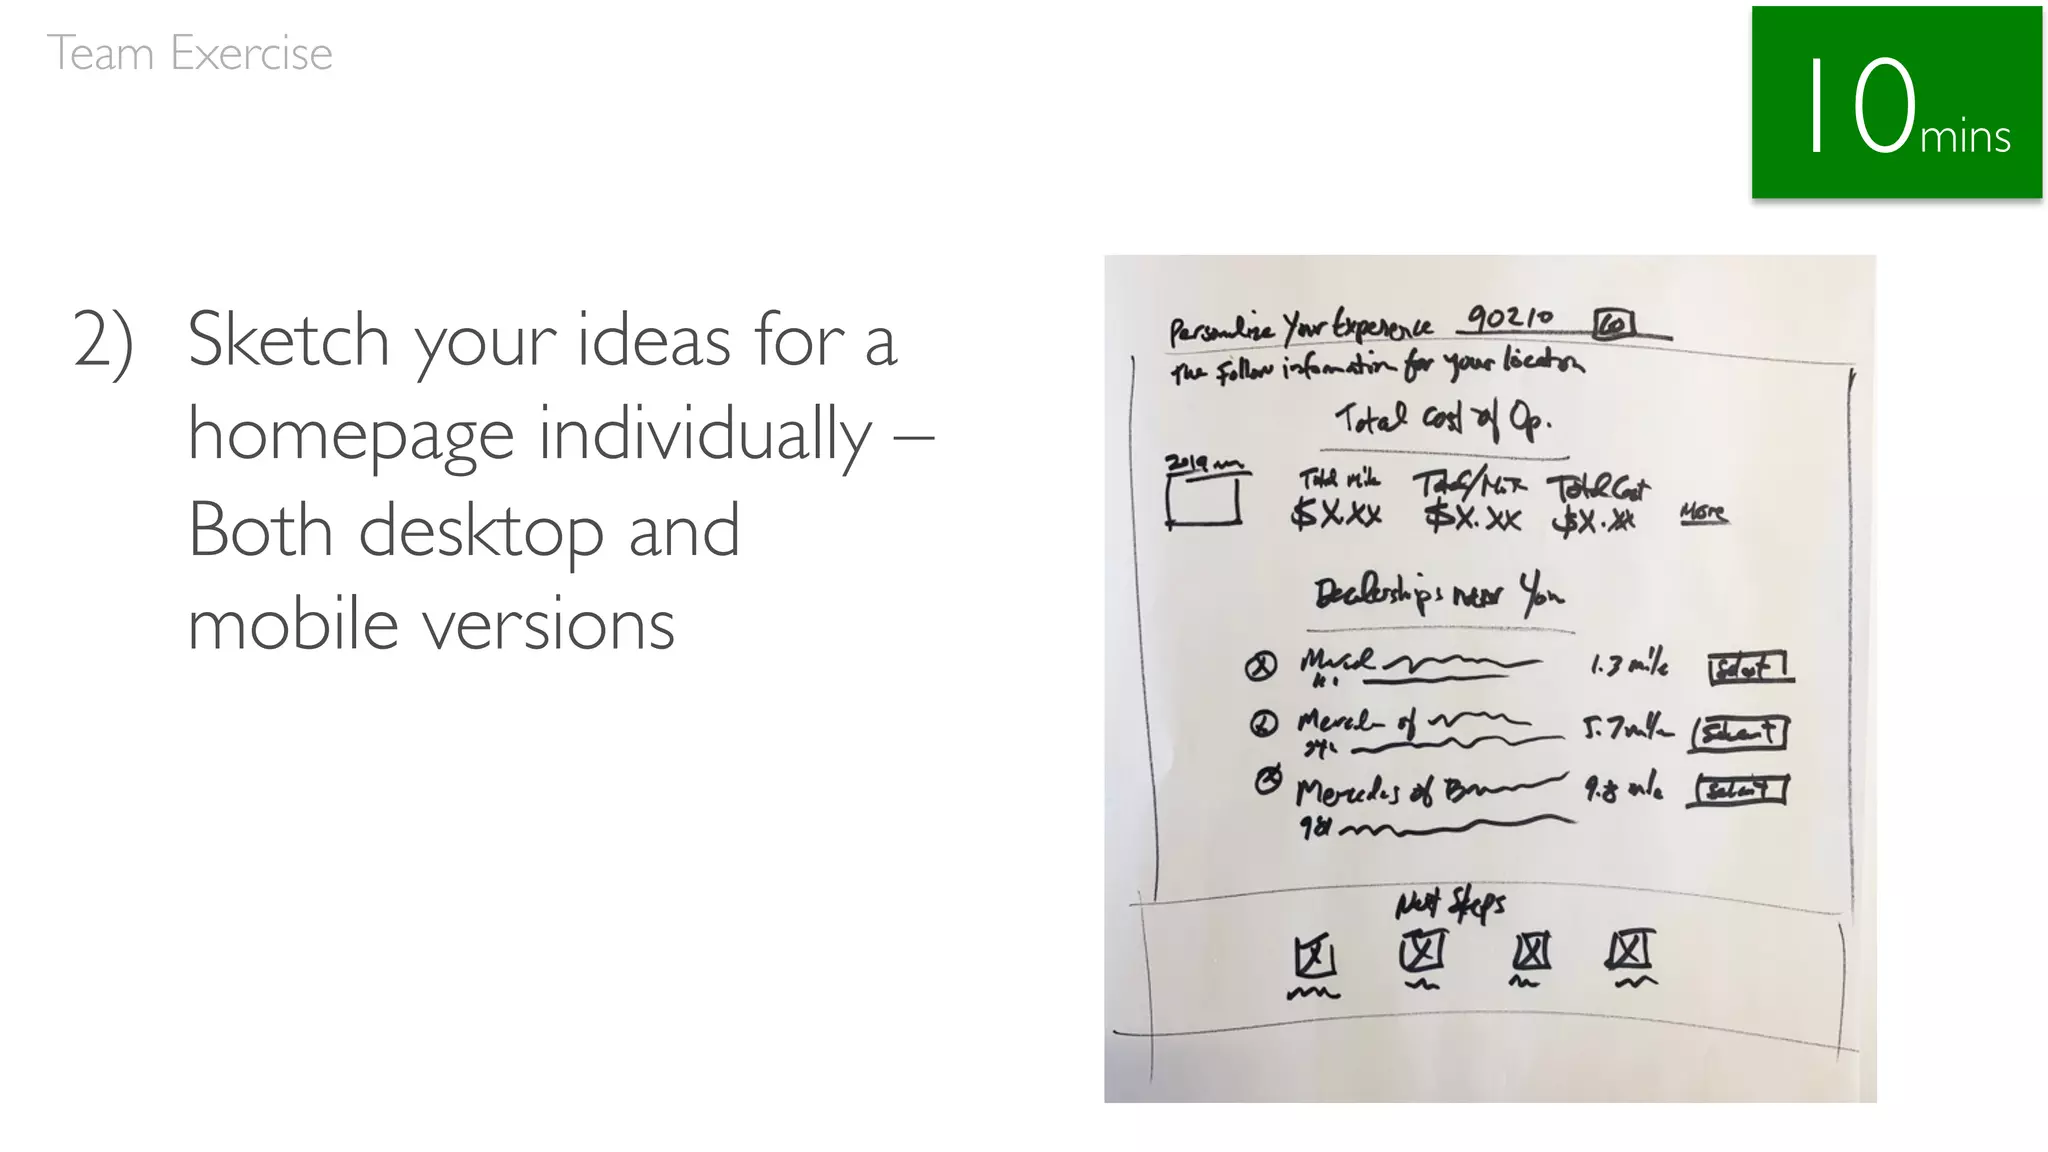 Team Exercise
10mins
2) Sketch your ideas for a
homepage individually –
Both desktop and
mobile versions
Personalize Your Experience 90210 GO
The Follow information for your location
Total Cost of Op.
2019
Total Mile Total/Mo Total Cost
$X.XX $X.XX $X.XX More
Dealerships near You
1.3 mile Select
of 5.7 Select
Mercedes of B 9.8 mile Select
981
Next Steps